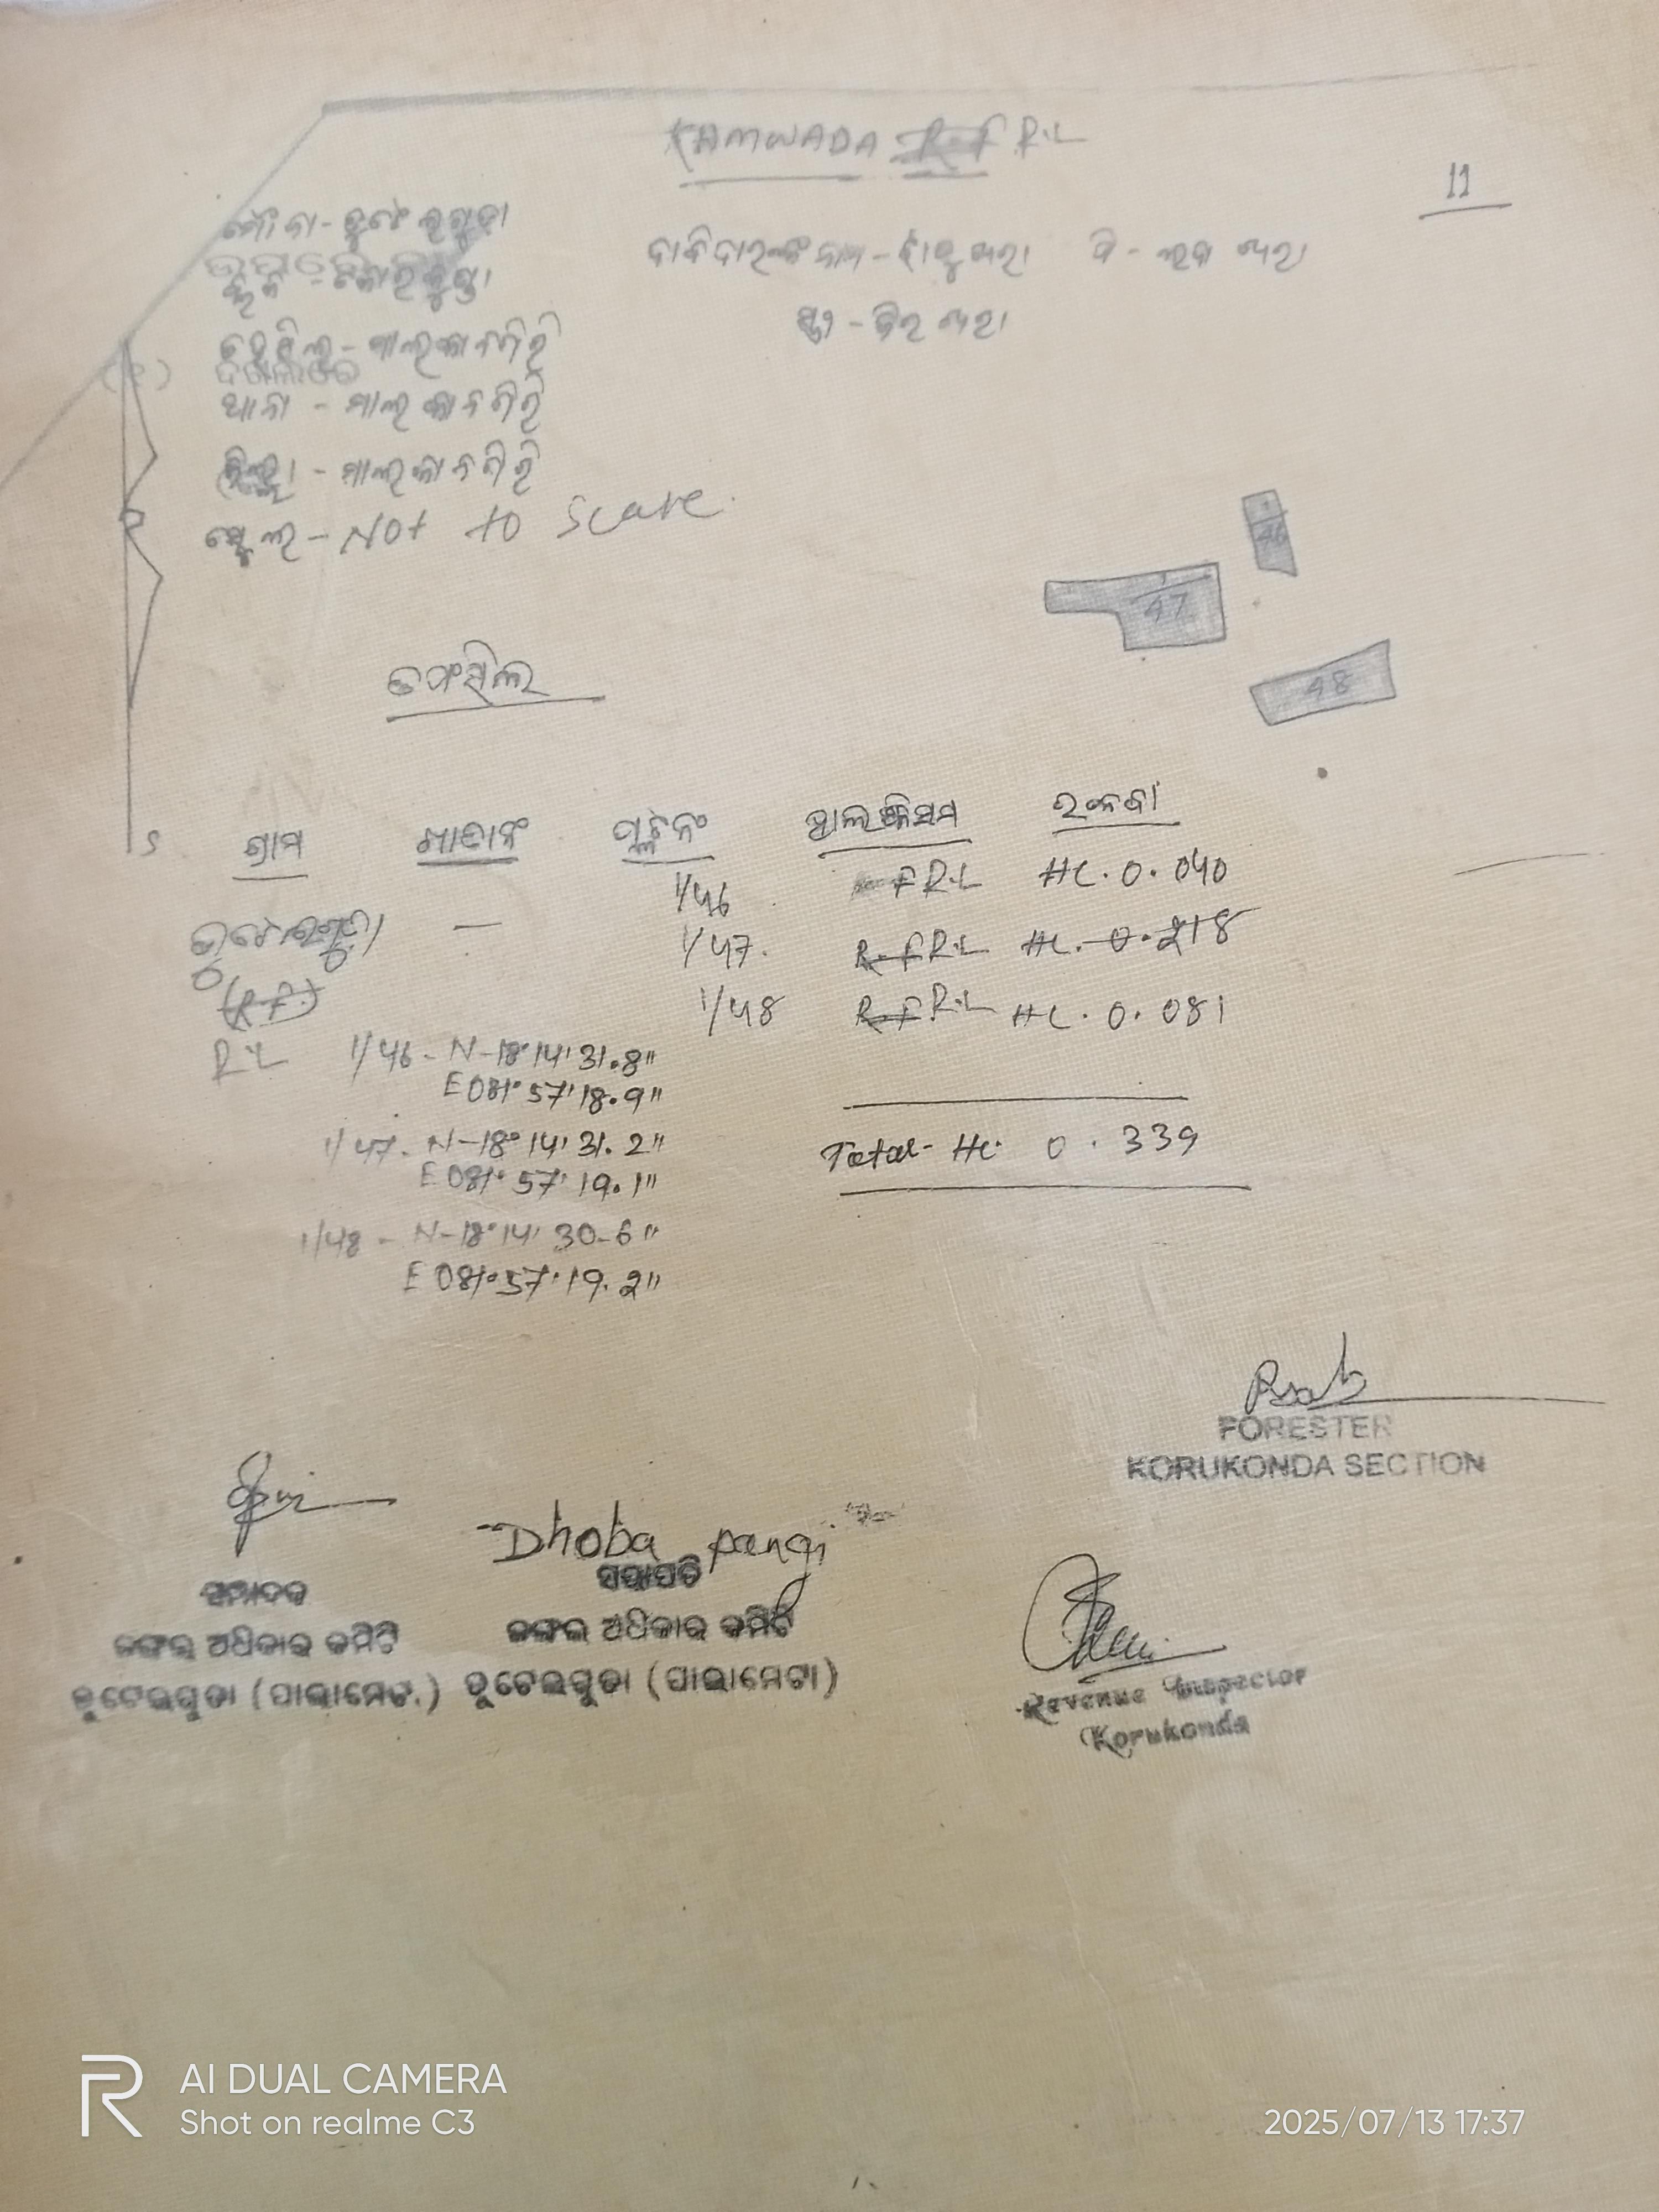 KAMWADA R.F R.L
11
ମୌଜା - ଡୁଟେଇଗୁଡା
ଦାବିଦାରଙ୍କ ନାମ -
ତହସିଲ - ମାଲକାନଗିରି
ଥାନା - ମାଲକାନଗିରି
ଜିଲ୍ଲା - ମାଲକାନଗିରି
ସ୍କେଲ - Not to Scale
46
47
48
ତଫସିଲ
S ଗ୍ରାମ ଖାତାନଂ ପ୍ଲଟନଂ ହାଲକିସମ ରକବା
1/46 F R.L HC. 0. 040
ଡୁଟେଇଗୁଡା — 1/47. R.F R.L HC. 0. 218
(R.F.) 1/48 R.F R.L HC. 0. 081
R.L 1/46 - N-18°14'31.8"
E 081°57'18.9"
1/47. N-18°14'31.2" Total- HC 0. 339
E 081°57'19.1"
1/48 - N-18°14'30-6"
E 081°57'19.2"
FORESTER
KORUKONDA SECTION
Dhoba pangi
ସମ୍ପାଦକ ସଭାପତି
ଜଙ୍ଗଲ ଅଧିକାର କମିଟି ଜଙ୍ଗଲ ଅଧିକାର କମିଟି
ଡୁଟେଇଗୁଡା (ପାଲାମେଟା) ଡୁଟେଇଗୁଡା (ପାଲାମେଟା)
Revenue Inspector
Korukonda
AI DUAL CAMERA
Shot on realme C3
2025/07/13 17:37